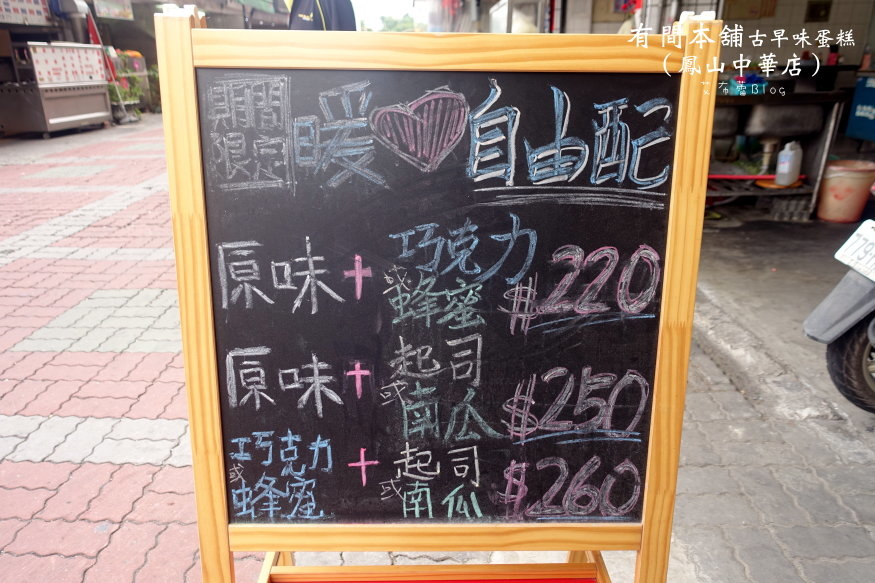 有間本舖古早味蛋糕
(鳳山中華店)
艾布蕾Blog
期間限定 暖 自由配
原味+巧克力或蜂蜜 $220
原味+起司或南瓜 $250
巧克力或蜂蜜+起司或南瓜 $260